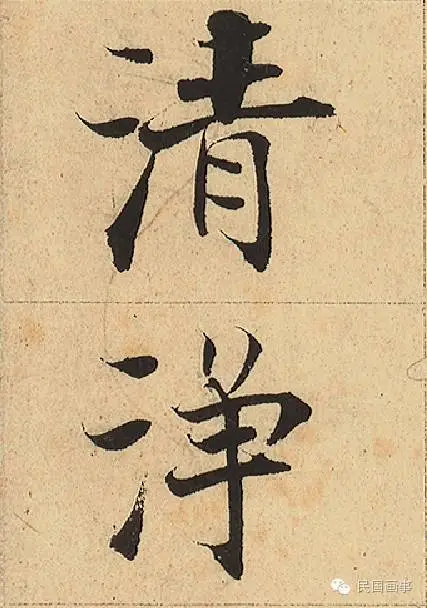 清
浄
民国画事